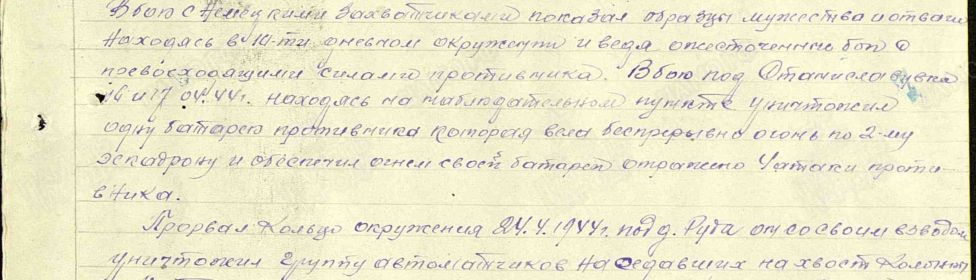 В бою с немецкими захватчиками показал образцы мужества и отваги
находясь в 10-ти дневном окружении и ведя ожесточенные бои с
превосходящими силами противника. В бою под Станиславувка
16 и 17 04.44г. находясь на наблюдательном пункте уничтожил
одну батарею противника которая вела беспрерывно огонь по 2-му
эскадрону и обеспечил огнем своей батареи отражено 4 атаки проти-
вника.
Прорвал кольцо окружения 24.4.1944г. под д. Рута он со своим взводом
уничтожил группу автоматчиков наседавших на хвост